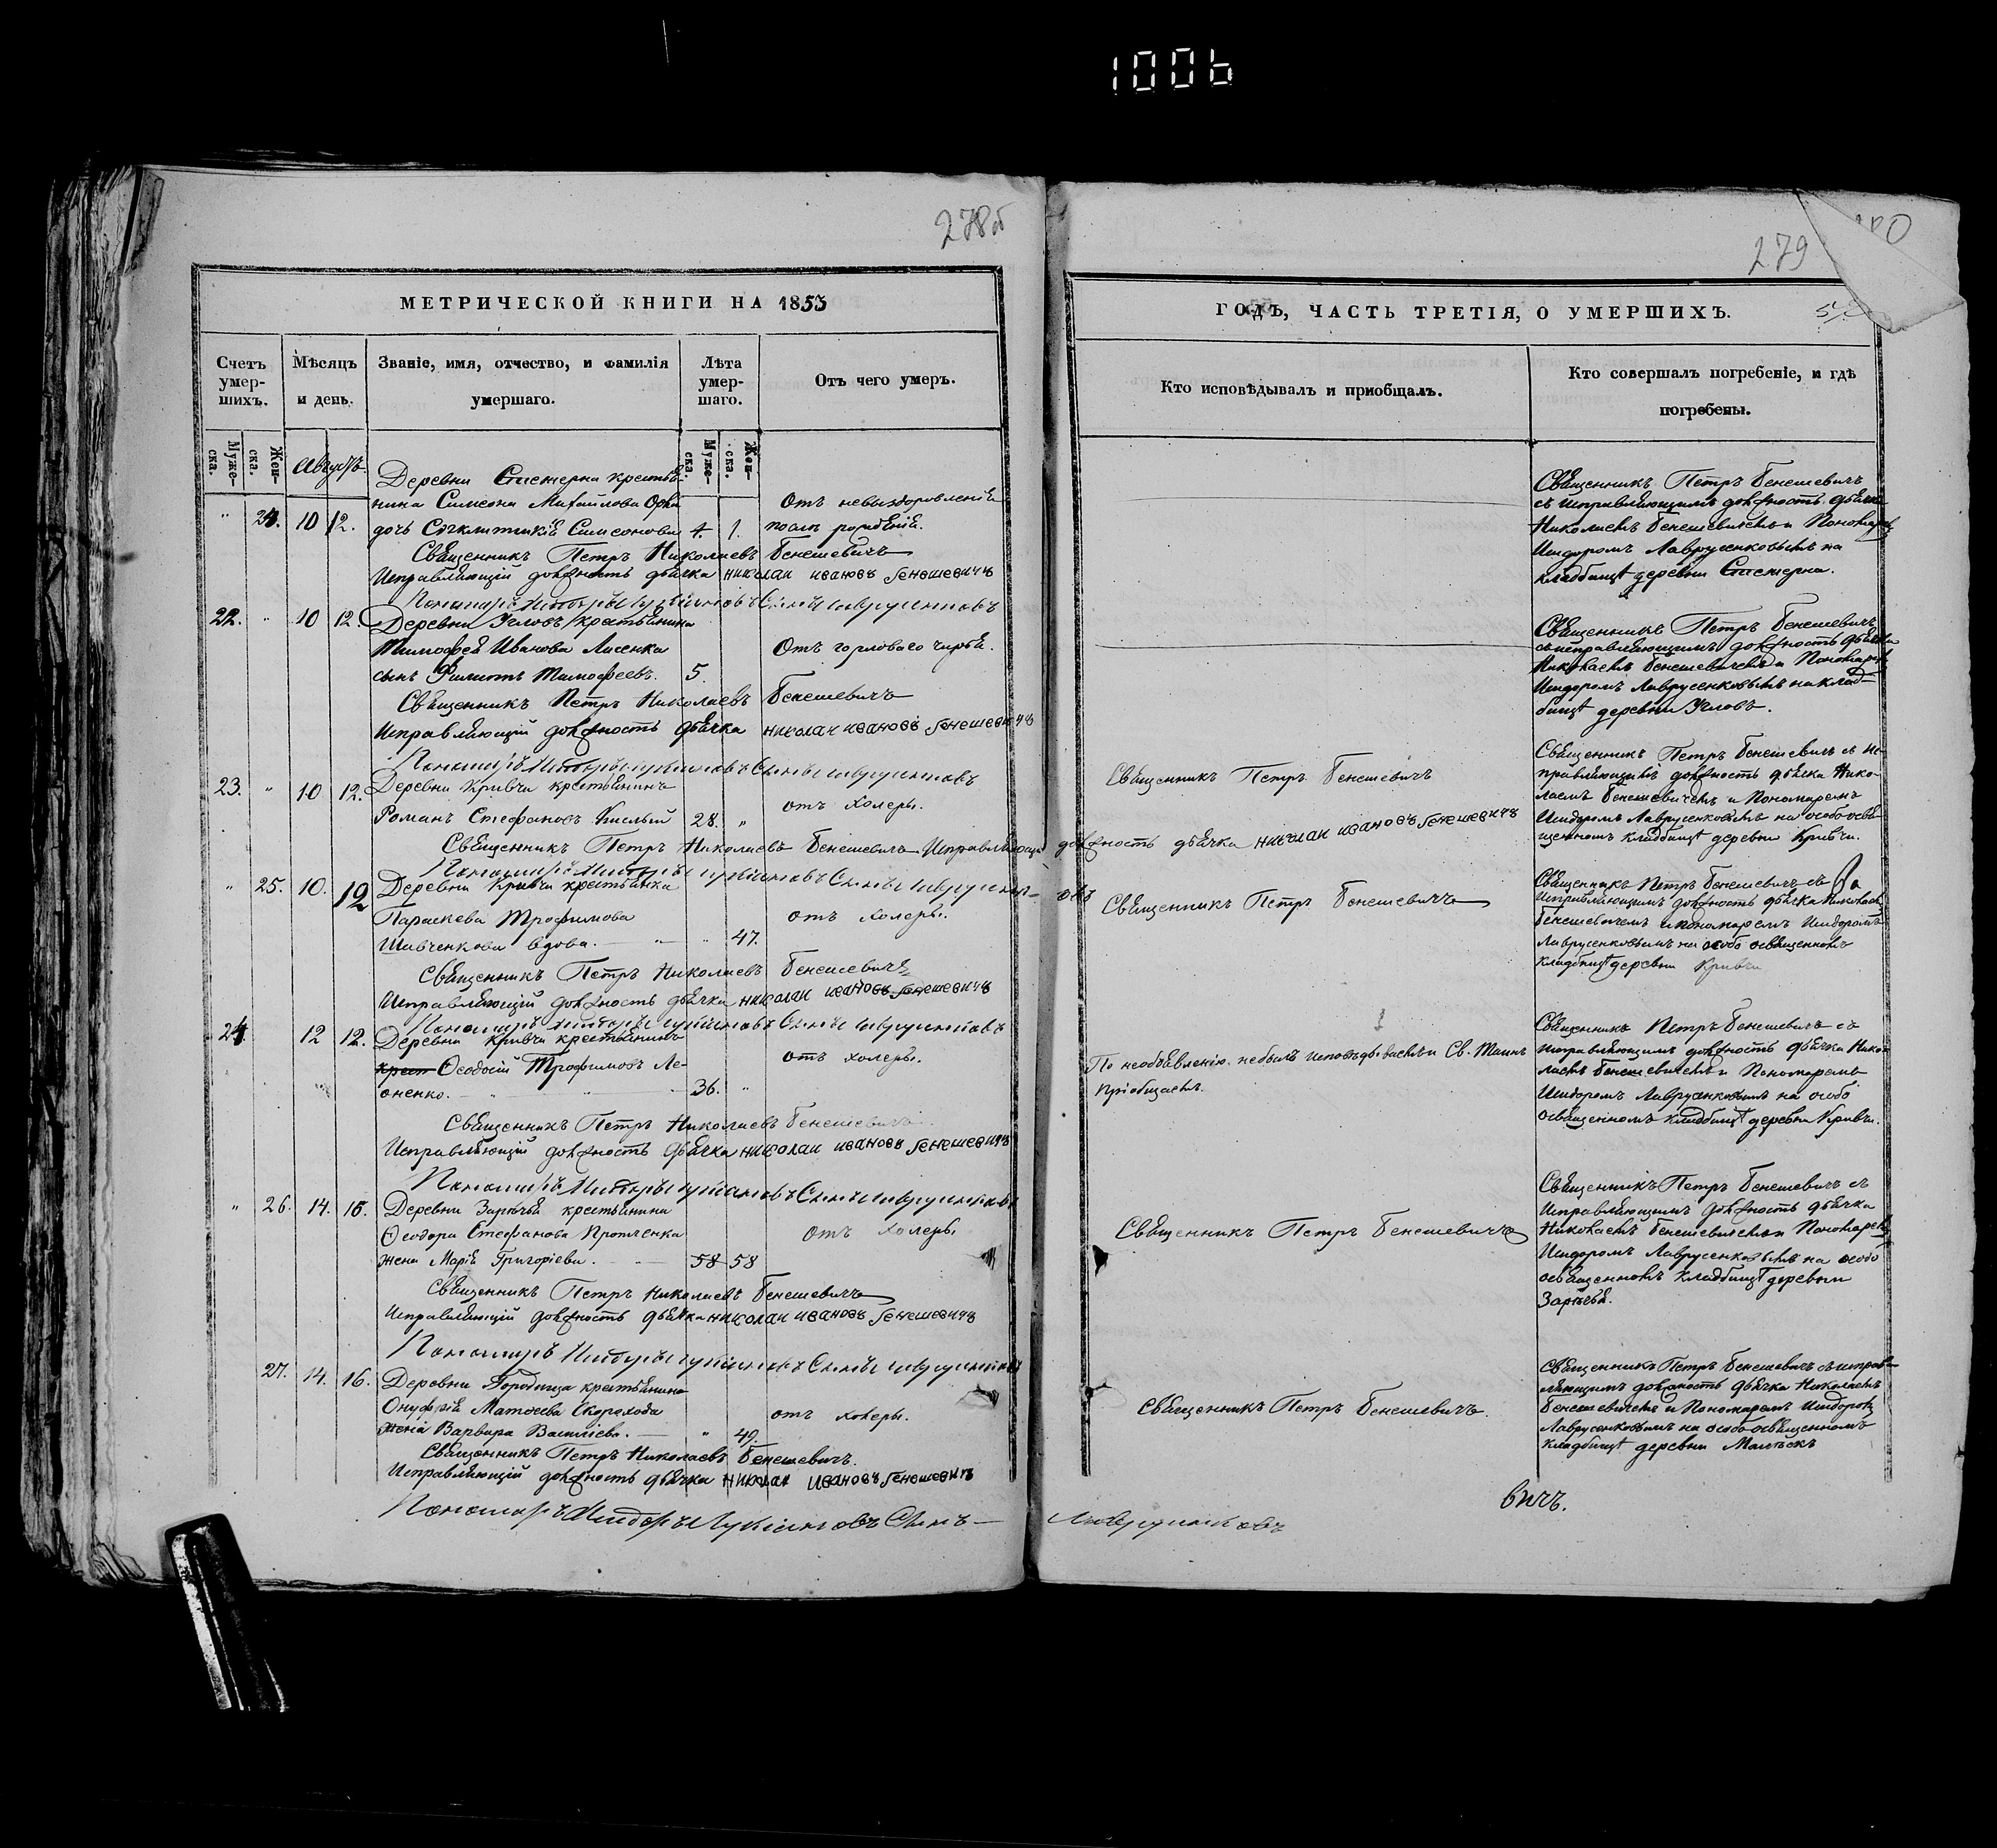 1006
278об
МЕТРИЧЕСКОЙ КНИГИ НА 1853
Счетъ умершихъ.
Мѣсяцъ и день.
Званіе, имя, отчество, и фамилія умершаго.
Лѣта умершаго.
Отъ чего умеръ.
Мужеска.
Женска.
Августъ.
Мужеска.
Женска.
Деревни крестья-
нина Симеона Михайлова
" 24. 10 12. дочь Симеонова 4. 1. Отъ невыздоровленія
послѣ родовъ
Священникъ Петръ Николаевъ Бенешевичъ
Исправляющій должность дьячка николаи ивановъ бенешевичъ
Пономаръ Исидоръ Лукіановъ Сынъ Лаврусенковъ
22. " 10 12. Деревни Углавъ крестьянина
Тимофея Иванова Лисенка Отъ горловаго чирья.
сынъ Филиппъ Тимофеевъ. 5.
Священникъ Петръ Николаевъ Бенешевичъ
Исправляющій должность дьячка николаи ивановъ бенешевичъ
Пономаръ Исидоръ Лукіановъ Сынъ Лаврусенковъ
23. " 10 12. Деревни Кривчи крестьянинъ
Романъ Стефановъ Кислый 28. " отъ холеры.
Священникъ Петръ Николаевъ Бенешевичъ Исправляющій должность дьячка николаи ивановъ бенешевичъ
Пономаръ Исидоръ Лукіановъ Сынъ Лаврусенковъ
" 25. 10. 12 Деревни Кривчи крестьянка
Параскева Трофимова отъ холеры.
Шавченкова вдова. " " 47.
Священникъ Петръ Николаевъ Бенешевичъ
Исправляющій должность дьячка николаи ивановъ бенешевичъ
Пономаръ Исидоръ Лукіановъ Сынъ Лаврусенковъ
24. 12 12. Деревни Кривчи крестьянинъ
крест Ѳеодосій Трофимовъ Ле- отъ холеры.
оненко. 36. "
Священникъ Петръ Николаевъ Бенешевичъ
Исправляющій должность дьячка николаи ивановъ бенешевичъ
Пономаръ Исидоръ Лукіановъ Сынъ Лаврусенковъ
" 26. 14. 15. Деревни Зарѣчья крестьянина
Ѳеодора Стефанова Протченка отъ холеры
жена Марія Григоріева. 58 58
Священникъ Петръ Николаевъ Бенешевичъ
Исправляющій должность дьячка николаи ивановъ бенешевичъ
Пономаръ Исидоръ Лукіановъ Сынъ Лаврусенковъ
27. 14. 16. Деревни Городища крестьянина
Онуфрія Матѳеева Скорохода отъ холеры.
жена Варвара Василіева. " 49.
Священникъ Петръ Николаевъ Бенешевичъ.
Исправляющій должность дьячка николаи ивановъ бенешевичъ
Пономаръ Исидоръ Лукіановъ Сынъ Лаврусенковъ
279
ГОДЪ, ЧАСТЬ ТРЕТІЯ, О УМЕРШИХЪ.
Кто исповѣдывалъ и приобщалъ.
Кто совершалъ погребеніе, и гдѣ погребены.
Священникъ Петръ Бенешевичъ
съ исправляющимъ должность дьячка
Николаемъ Бенешевичемъ и Пономаремъ
Исидоромъ Лаврусенковымъ на
кладбищѣ деревни
Священникъ Петръ Бенешевичъ
съ исправляющимъ должность дьячка
Николаемъ Бенешевичемъ и Пономаремъ
Исидоромъ Лаврусенковымъ на клад-
бищѣ деревни Углавъ.
Священникъ Петръ Бенешевичъ
Священникъ Петръ Бенешевичъ съ ис-
правляющимъ должность дьячка Нико-
лаемъ Бенешевичемъ и Пономаремъ
Исидоромъ Лаврусенковымъ на особо освя-
щенномъ кладбищѣ деревни Кривчи.
Священникъ Петръ Бенешевичъ
Священникъ Петръ Бенешевичъ съ
Исправляющимъ должность дьячка Николаемъ
Бенешевичемъ и пономаремъ Исидоромъ
Лаврусенковымъ на особо освященномъ
кладбищѣ деревни Кривчи
По необъявленію небылъ исповѣдываемъ и Св. Таинъ
пріобщаемъ.
Священникъ Петръ Бенешевичъ съ
исправляющимъ должность дьячка Нико-
лаемъ Бенешевичемъ и Пономаремъ
Исидоромъ Лаврусенковымъ на особо
освященномъ кладбищѣ деревни Кривчи.
Священникъ Петръ Бенешевичъ
Священникъ Петръ Бенешевичъ съ
Исправляющимъ должность дьячка
Николаемъ Бенешевичемъ и Пономаремъ
Исидоромъ Лаврусенковымъ на особо
освященномъ кладбищѣ деревни
Зарѣчья.
Священникъ Петръ Бенешевичъ.
Священникъ Петръ Бенешевичъ съ исправ-
ляющимъ должность дьячка Николаемъ
Бенешевичемъ и Пономаремъ Исидоромъ
Лаврусенковымъ на особо освященномъ
кладбищѣ деревни
вичъ.